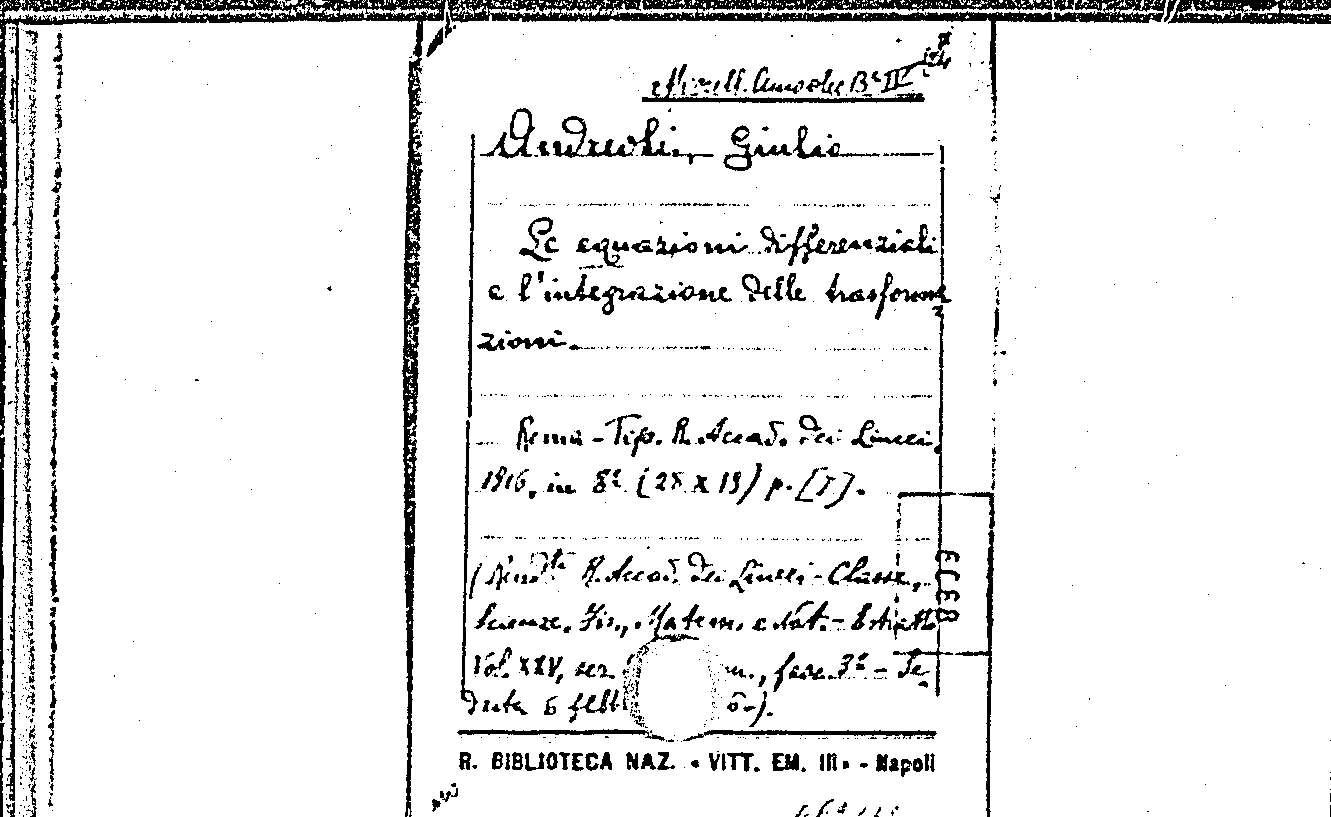 Miscell. Amodeo Bª III
Andreoli, Giulio
Le equazioni differenziali
e l'integrazione delle trasforma
zioni.
Roma - Tip. R. Accad. dei Lincei,
1916, in 8º (28 x 19) p. [7].
(Rendti R. Accad. dei Lincei - Classe
Scienze. Fis., Matem. e Nat. - Estratto
Vol. XXV, ser. fasc. 3º - Se
duta 6 febb
R. BIBLIOTECA NAZ. « VITT. EM. III» - Napoli